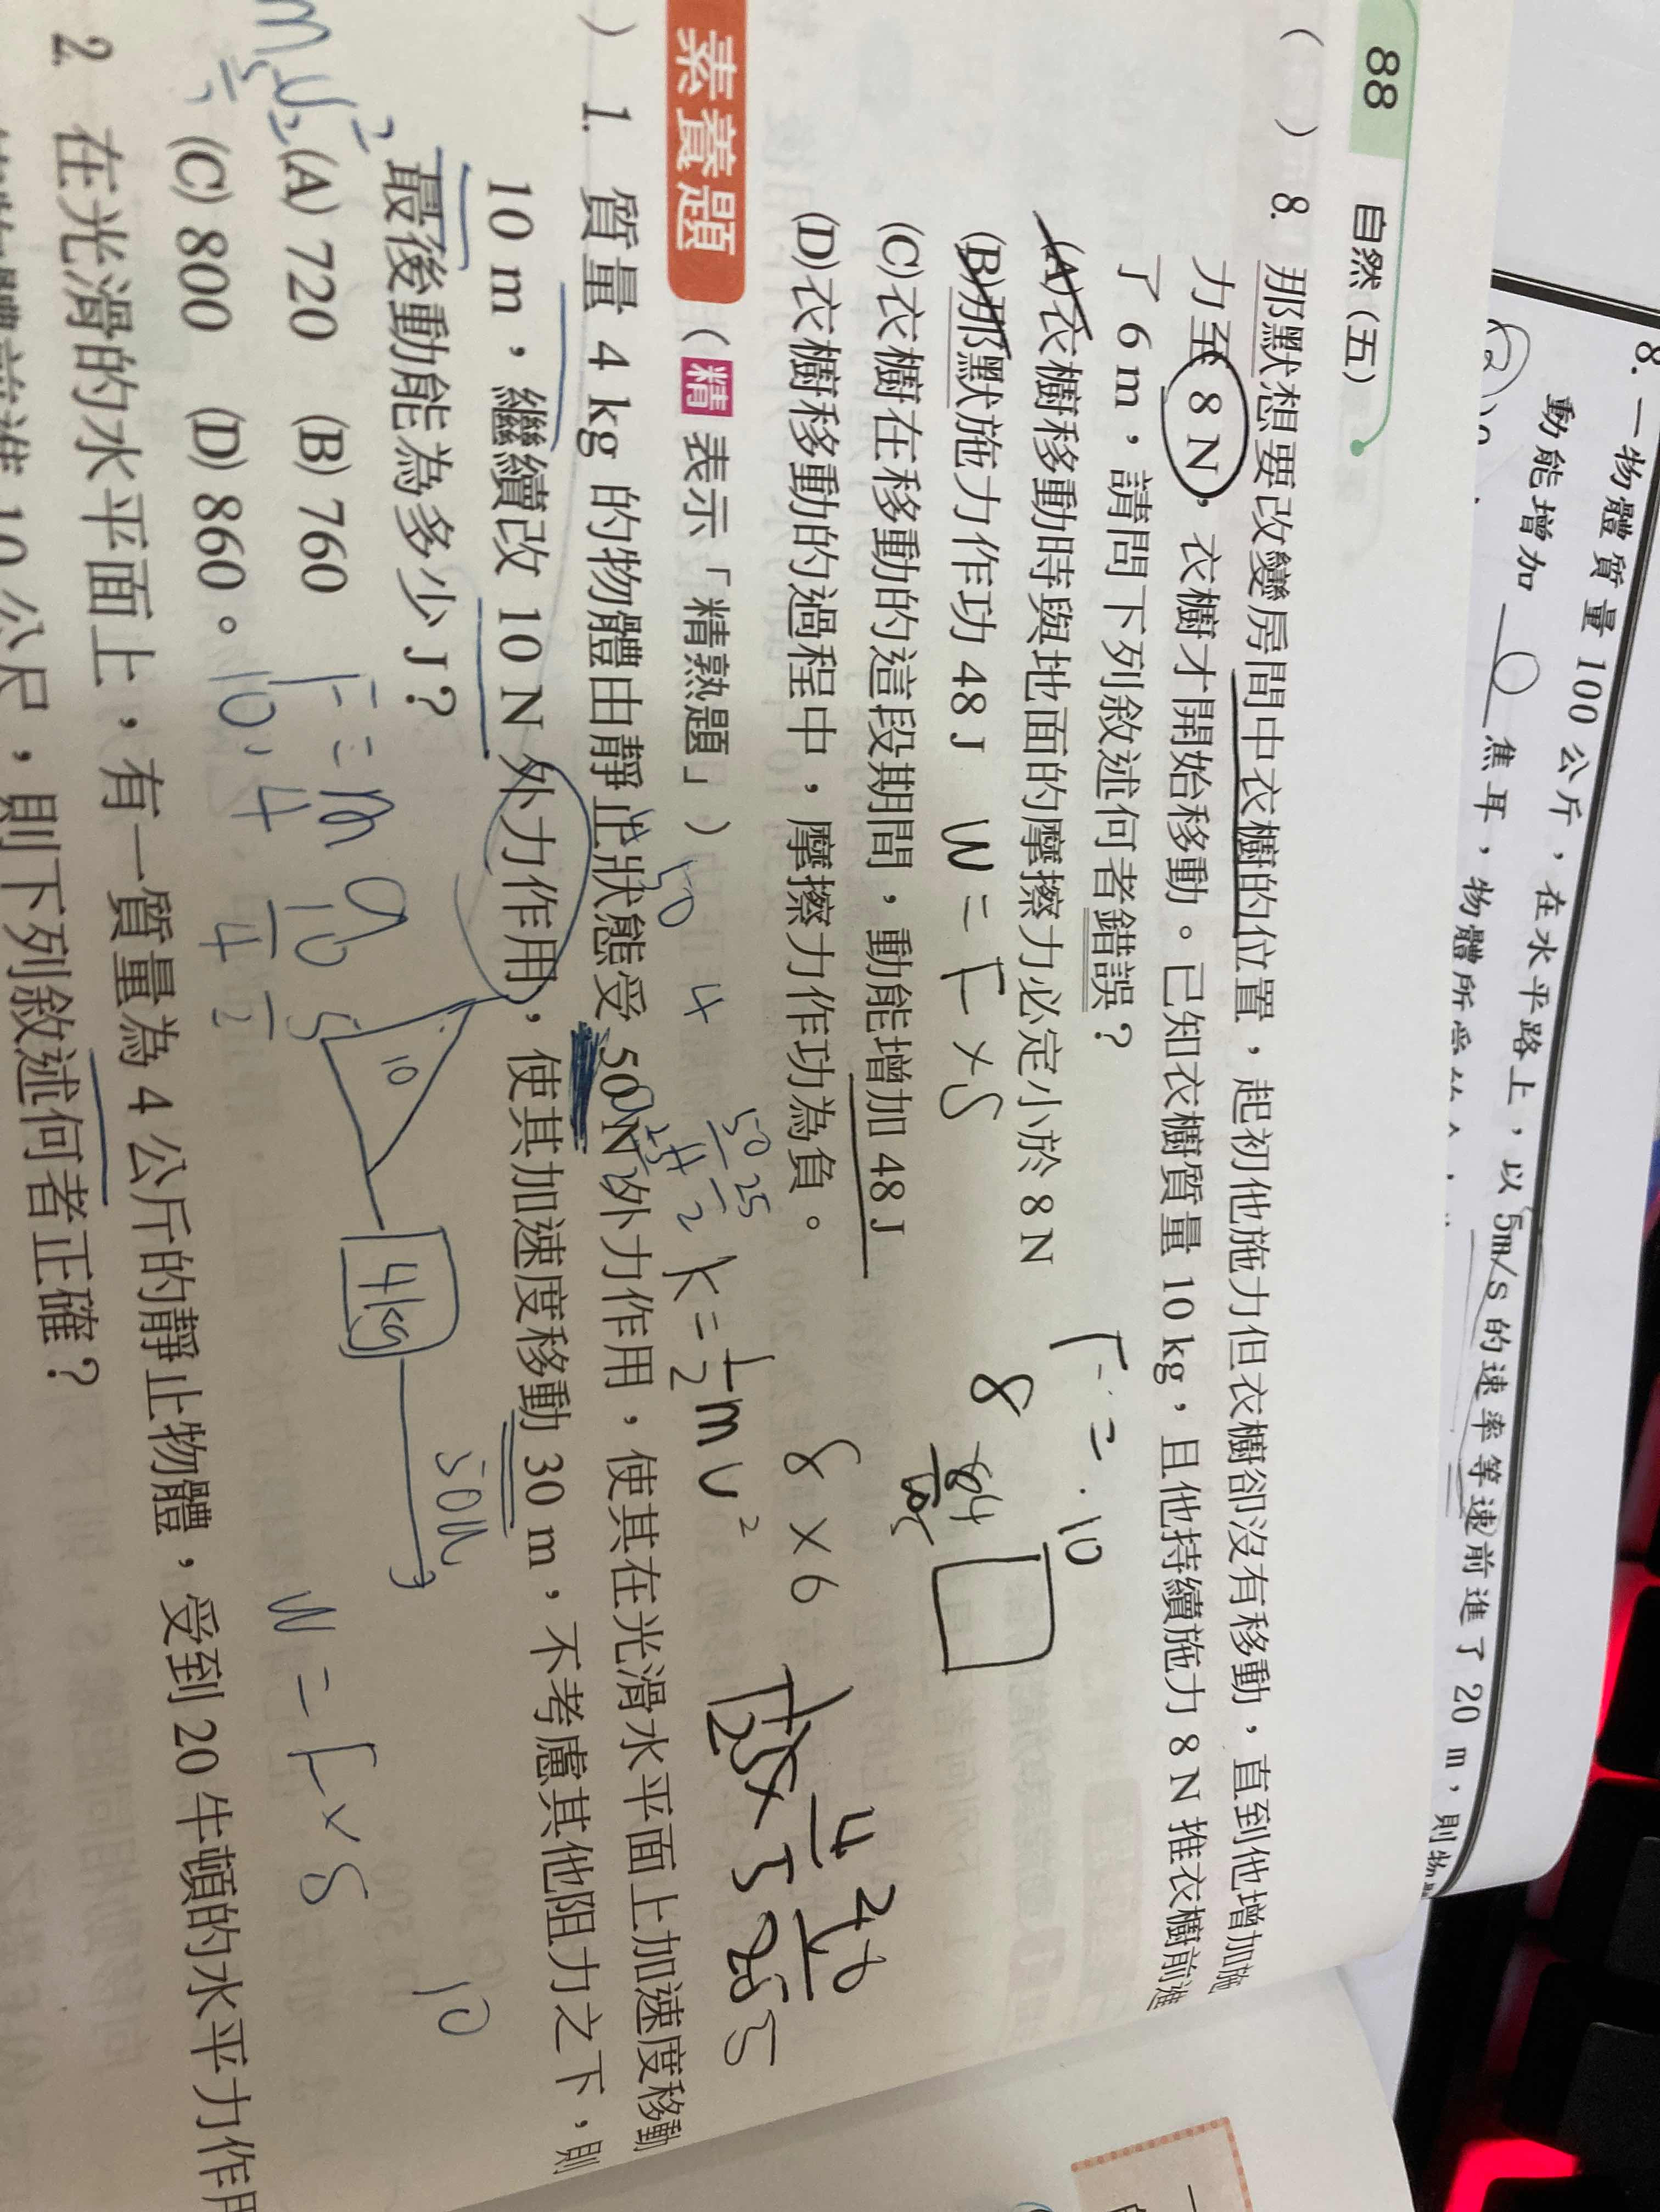 8. 一物體質量 100 公斤，在水平路上，以 5m/s 的速率等速前進了 20 m，則物
動能增加 0 焦耳，物體所受
88 自然(五)
( ) 8. 那默想要改變房間中衣櫥的位置，起初他施力但衣櫥卻沒有移動，直到他增加施
力至 8 N，衣櫥才開始移動。已知衣櫥質量 10 kg，且他持續施力 8 N 推衣櫥前進
了 6 m，請問下列敘述何者錯誤？
(A)衣櫥移動時與地面的摩擦力必定小於 8 N
(B)那默施力作功 48 J W=F×S
(C)衣櫥在移動的這段期間，動能增加 48 J
(D)衣櫥移動的過程中，摩擦力作功為負。
F=
10
8
8×6
素養題（精 表示「精熟題」）
50 4
50 25
K=1/2 mv²
) 1. 質量 4 kg 的物體由靜止狀態受 50 N 外力作用，使其在光滑水平面上加速度移動
10 m，繼續改 10 N 外力作用，使其加速度移動 30 m，不考慮其他阻力之下，則
最後動能為多少 J？
(A) 720 (B) 760
(C) 800 (D) 860。
F=ma
10
4kg
50N
W=F×S
10
2. 在光滑的水平面上，有一質量為 4 公斤的靜止物體，受到 20 牛頓的水平力作用
10 公尺，則下列敘述何者正確？